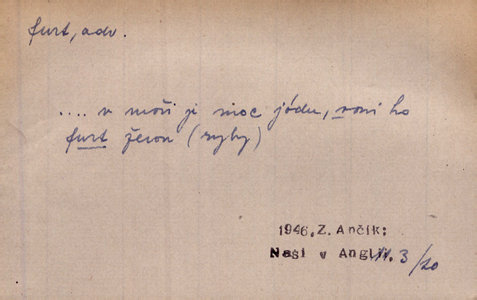 furt, adv.
.... v moři je moc jódu, voni ho
furt žerou (ryby)
1946, Z. Ančík:
Naši v Anglii. 3/20